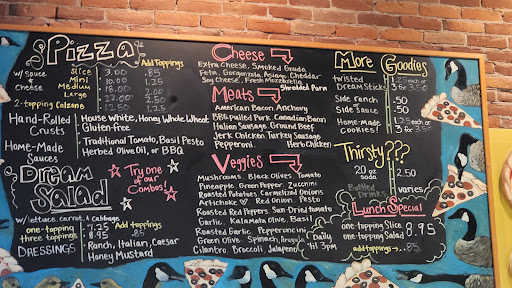 Pizza
w/ sauce & cheese
Slice 3.00
Mini 10.00
Medium 18.00
Large 22.00
Add Toppings
.85
1.25
2.00
2.50
2-topping Calzone 12.50 1.25
Hand-Rolled Crusts
House white, Honey Whole Wheat
Gluten-free
Home-Made Sauces
Traditional Tomato, Basil Pesto
Herbed Olive Oil, or BBQ
Dream Salad
Try one of our Combos!
w/ lettuce, carrot & cabbage
one-topping - 7.25
three toppings - 8.95
Add toppings
.85
DRESSINGS
Ranch, Italian, Caesar
Honey Mustard
Cheese
Extra Cheese, Smoked Gouda
Feta, Gorgonzola, Asiago, Cheddar
Soy Cheese, Fresh Mozzarella
Meats
Shredded Pork
American Bacon, Anchovy
BBQ Pulled Pork, Canadian Bacon
Italian Sausage, Ground Beef
Jerk Chicken, Turkey Sausage
Pepperoni, Herb Chicken
Veggies
Mushrooms, Black Olives, Tomato
Pineapple, Green Pepper, Zucchini
Roasted Potatoes, Carmelized Onions
Artichoke Red Onion Pesto
Roasted Red Peppers, Sun-Dried Tomato
Garlic Kalamata Olive, Basil
Roasted Garlic Pepperoncini
Green Olive Spinach
Cilantro, Broccoli, Jalapeno
More Goodies
twisted Dream Sticks
1.25 each or
3 for 3.50
Side ranch .50
Side sauce .50
Home-made cookies!
1.25 each or
3 for 3.50
Thirsty???
20 oz soda 2.50
Bottled Drinks varies
Lunch Special
Daily 'til 3pm
one-topping Slice
one-topping Salad
8.95
add toppings→ .85